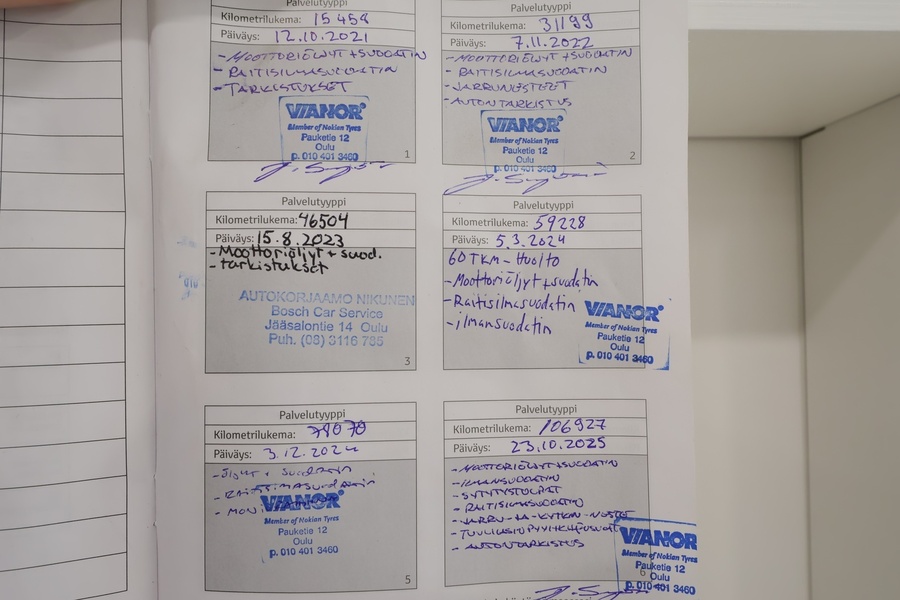 Palvelutyyppi
Kilometrilukema: 15 458
Päiväys: 12.10.2021
- MOOTTORIÖLJYT + SUODATIN
- RAITISILMASUODATIN
- TARKISTUKSET
VIANOR
Member of Nokian Tyres
Pauketie 12
Oulu
p. 010 401 3460
1
Palvelutyyppi
Kilometrilukema: 31199
Päiväys: 7.11.2022
- MOOTTORIÖLJYT + SUODATIN
- RAITISILMASUODATIN
- JARRUNESTEET
- AUTON TARKISTUS
VIANOR
Member of Nokian Tyres
Pauketie 12
Oulu
p. 010 401 3460
2
Palvelutyyppi
Kilometrilukema: 46504
Päiväys: 15.8.2023
- Moottoriöljyt + suod.
- tarkistukset
AUTOKORJAAMO NIKUNEN
Bosch Car Service
Jääsalontie 14 Oulu
Puh. (08) 3116 785
3
Palvelutyyppi
Kilometrilukema: 59228
Päiväys: 5.3.2024
60 TKM - Huolto
- Moottoriöljyt + suodatin
- Raitisilmasuodatin
- ilmansuodatin
VIANOR
Member of Nokian Tyres
Pauketie 12
Oulu
p. 010 401 3460
Palvelutyyppi
Kilometrilukema: 78070
Päiväys: 3.12.2024
- Öljyt + suodatin
- RAITISILMASUODATIN
- MONI
VIANOR
Member of Nokian Tyres
Pauketie 12
Oulu
p. 010 401 3460
5
Palvelutyyppi
Kilometrilukema: 106927
Päiväys: 23.10.2025
- MOOTTORIÖLJYT + SUODATIN
- ILMANSUODATIN
- SYTYTYSTULPAT
- RAITISILMASUODATIN
- JARRU- JA KYTKIN-NESTE
- AUTON TARKISTUS
VIANOR
Member of Nokian Tyres
Pauketie 12
6 Oulu
p. 010 401 3460